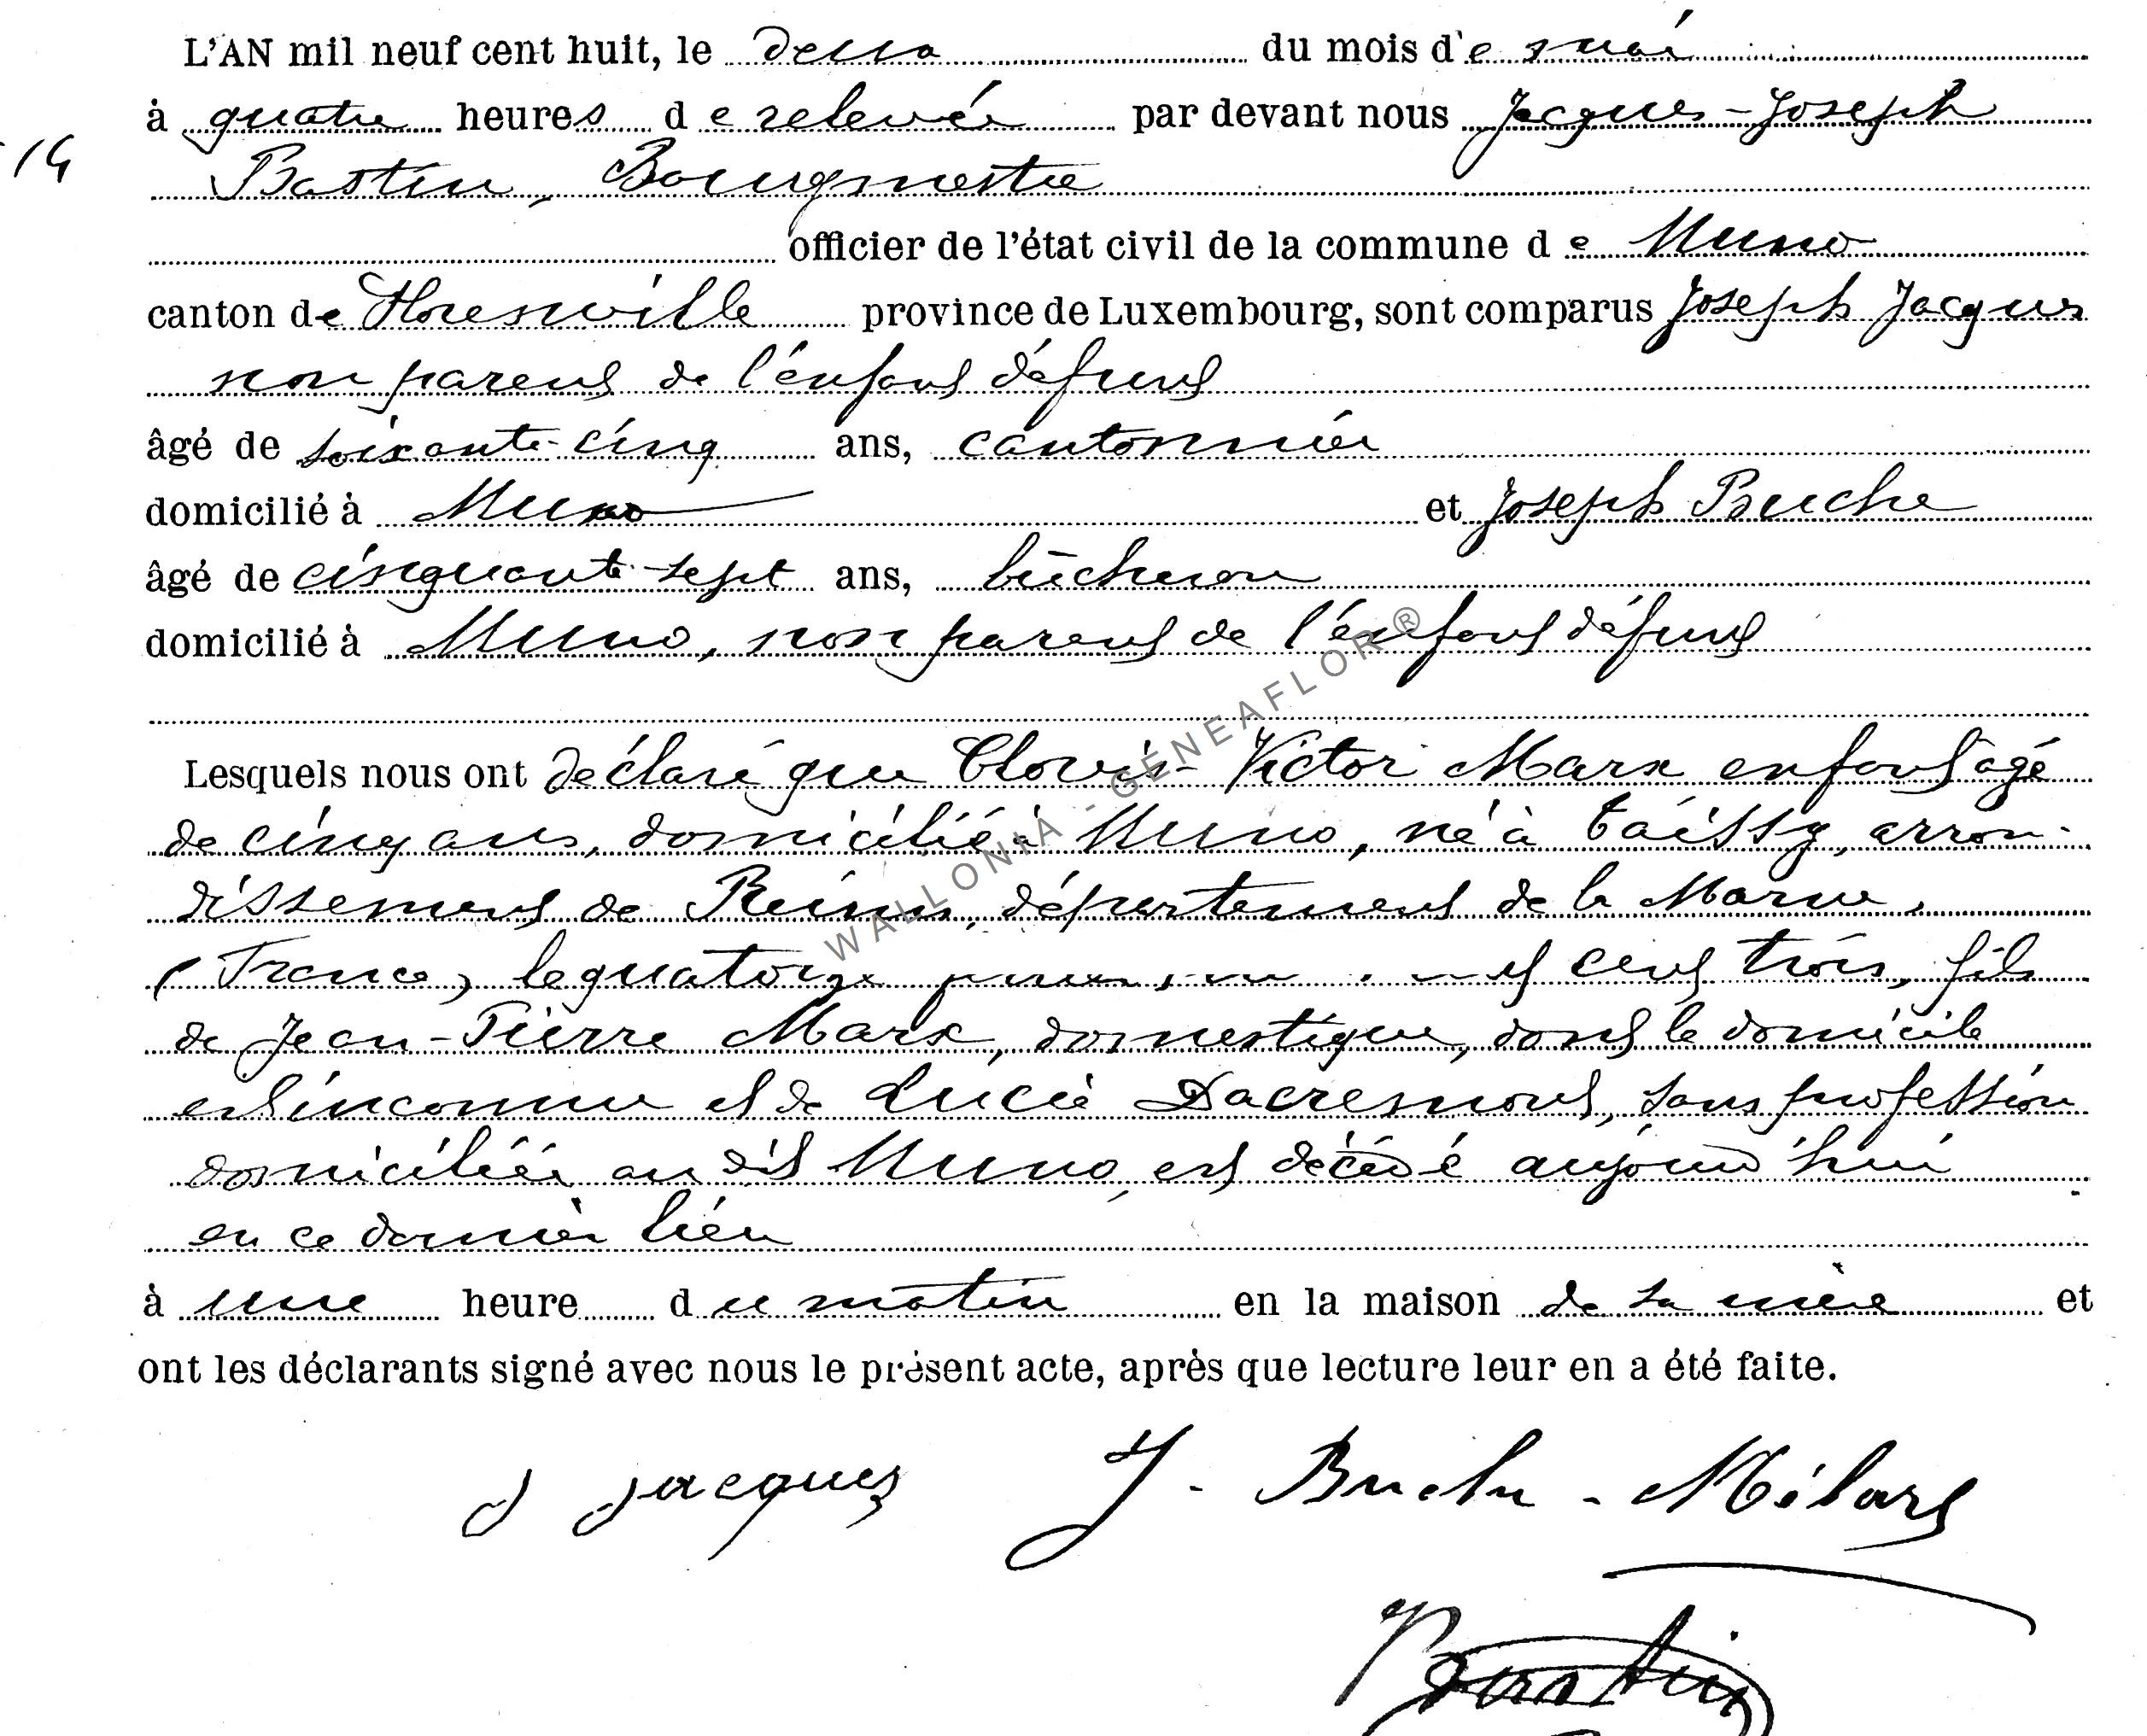 L'AN mil neuf cent huit, le deux du mois de mai
à quatre heures de relevée par devant nous Jacques-Joseph
14
Bastin, Bourgmestre
officier de l'état civil de la commune de Muno
canton de Florenville province de Luxembourg, sont comparus Joseph Jacques
non parent de l'enfant défunt
âgé de soixante-cinq ans, cantonnier
domicilié à Muno et Joseph Buche
âgé de cinquante-sept ans, bûcheron
domicilié à Muno, non parent de l'enfant défunt
Lesquels nous ont déclaré que Clovis-Victor Marx enfant âgé
de cinq ans, domicilié à Muno, né à Taissy, arron-
dissement de Reims, département de la Marne,
(France) le quatorze cent trois, fils
de Jean-Pierre Marx, domestique, dont le domicile
est inconnu et de Lucie Dacremont, sans profession
domiciliée au dit Muno, est décédé aujourd'hui
en ce dernier lieu
à une heure du matin en la maison de sa mère et
ont les déclarants signé avec nous le présent acte, après que lecture leur en a été faite.
J Jacques J. Buche-
Bastin
WALLONIA - GENEAFLOR ®